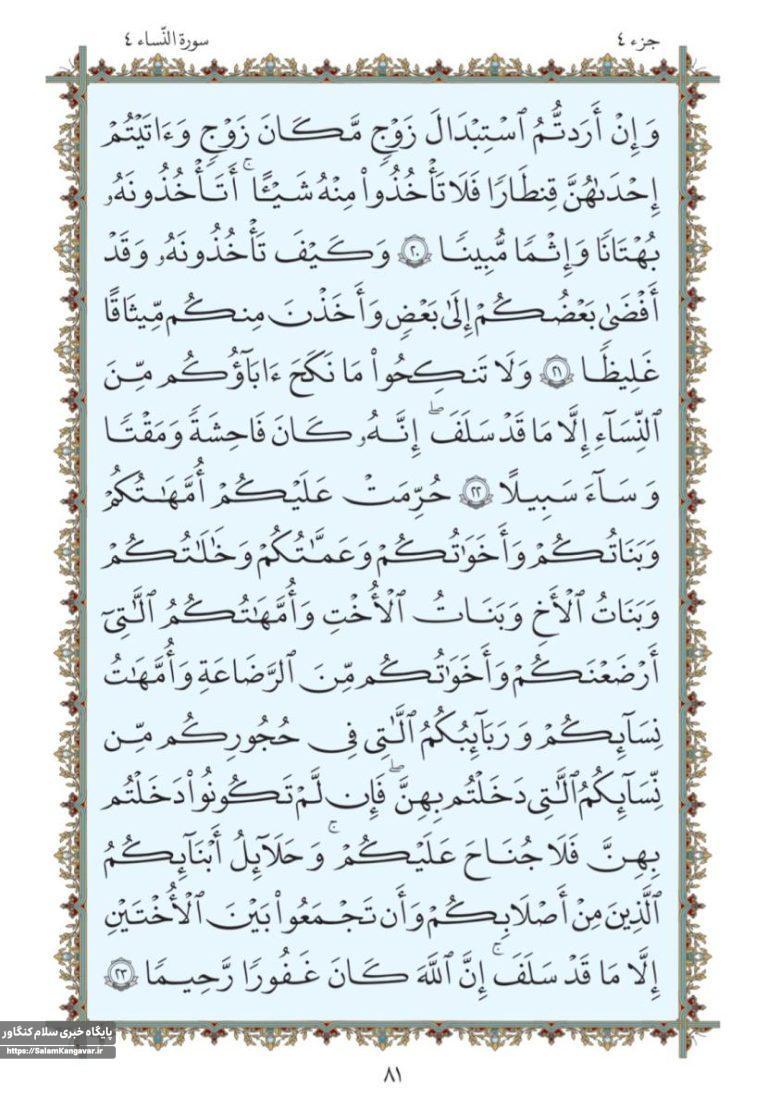 جزء ٤
سورة النّساء ٤
وَإِنْ أَرَدتُّمُ ٱسْتِبْدَالَ زَوْجٍ مَّكَانَ زَوْجٍ وَءَاتَيْتُمْ
إِحْدَىٰهُنَّ قِنطَارًا فَلَا تَأْخُذُوا۟ مِنْهُ شَيْـًٔا ۚ أَتَأْخُذُونَهُۥ
بُهْتَانًا وَإِثْمًا مُّبِينًا ﴿٢٠﴾ وَكَيْفَ تَأْخُذُونَهُۥ وَقَدْ
أَفْضَىٰ بَعْضُكُمْ إِلَىٰ بَعْضٍ وَأَخَذْنَ مِنكُم مِّيثَاقًا
غَلِيظًا ﴿٢١﴾ وَلَا تَنكِحُوا۟ مَا نَكَحَ ءَابَآؤُكُم مِّنَ
ٱلنِّسَآءِ إِلَّا مَا قَدْ سَلَفَ ۖ إِنَّهُۥ كَانَ فَاحِشَةً وَمَقْتًا
وَسَآءَ سَبِيلًا ﴿٢٢﴾ حُرِّمَتْ عَلَيْكُمْ أُمَّهَـٰتُكُمْ
وَبَنَاتُكُمْ وَأَخَوَٰتُكُمْ وَعَمَّـٰتُكُمْ وَخَـٰلَـٰتُكُمْ
وَبَنَاتُ ٱلْأَخِ وَبَنَـاتُ ٱلْأُخْتِ وَأُمَّهَـٰتُكُمُ ٱلَّـٰتِىٓ
أَرْضَعْنَكُمْ وَأَخَوَٰتُكُم مِّنَ ٱلرَّضَـٰعَةِ وَأُمَّهَـٰتُ
نِسَآئِكُمْ وَرَبَـٰٓئِبُكُمُ ٱلَّـٰتِى فِى حُجُورِكُم مِّن
نِّسَآئِكُمُ ٱلَّـٰتِى دَخَلْتُم بِهِنَّ ۖ فَإِن لَّمْ تَكُونُوا۟ دَخَلْتُم
بِهِنَّ فَلَا جُنَاحَ عَلَيْكُمْ ۚ وَحَلَـٰٓئِلُ أَبْنَآئِكُمُ
ٱلَّذِينَ مِنْ أَصْلَـٰبِكُمْ وَأَن تَجْمَعُوا۟ بَيْنَ ٱلْأُخْتَيْنِ
إِلَّا مَا قَدْ سَلَفَ ۚ إِنَّ ٱللَّهَ كَانَ غَفُورًا رَّحِيمًا ﴿٢٣﴾
پایگاه خبری سلام کنگاور
https://SalamKangavar.ir
٨١